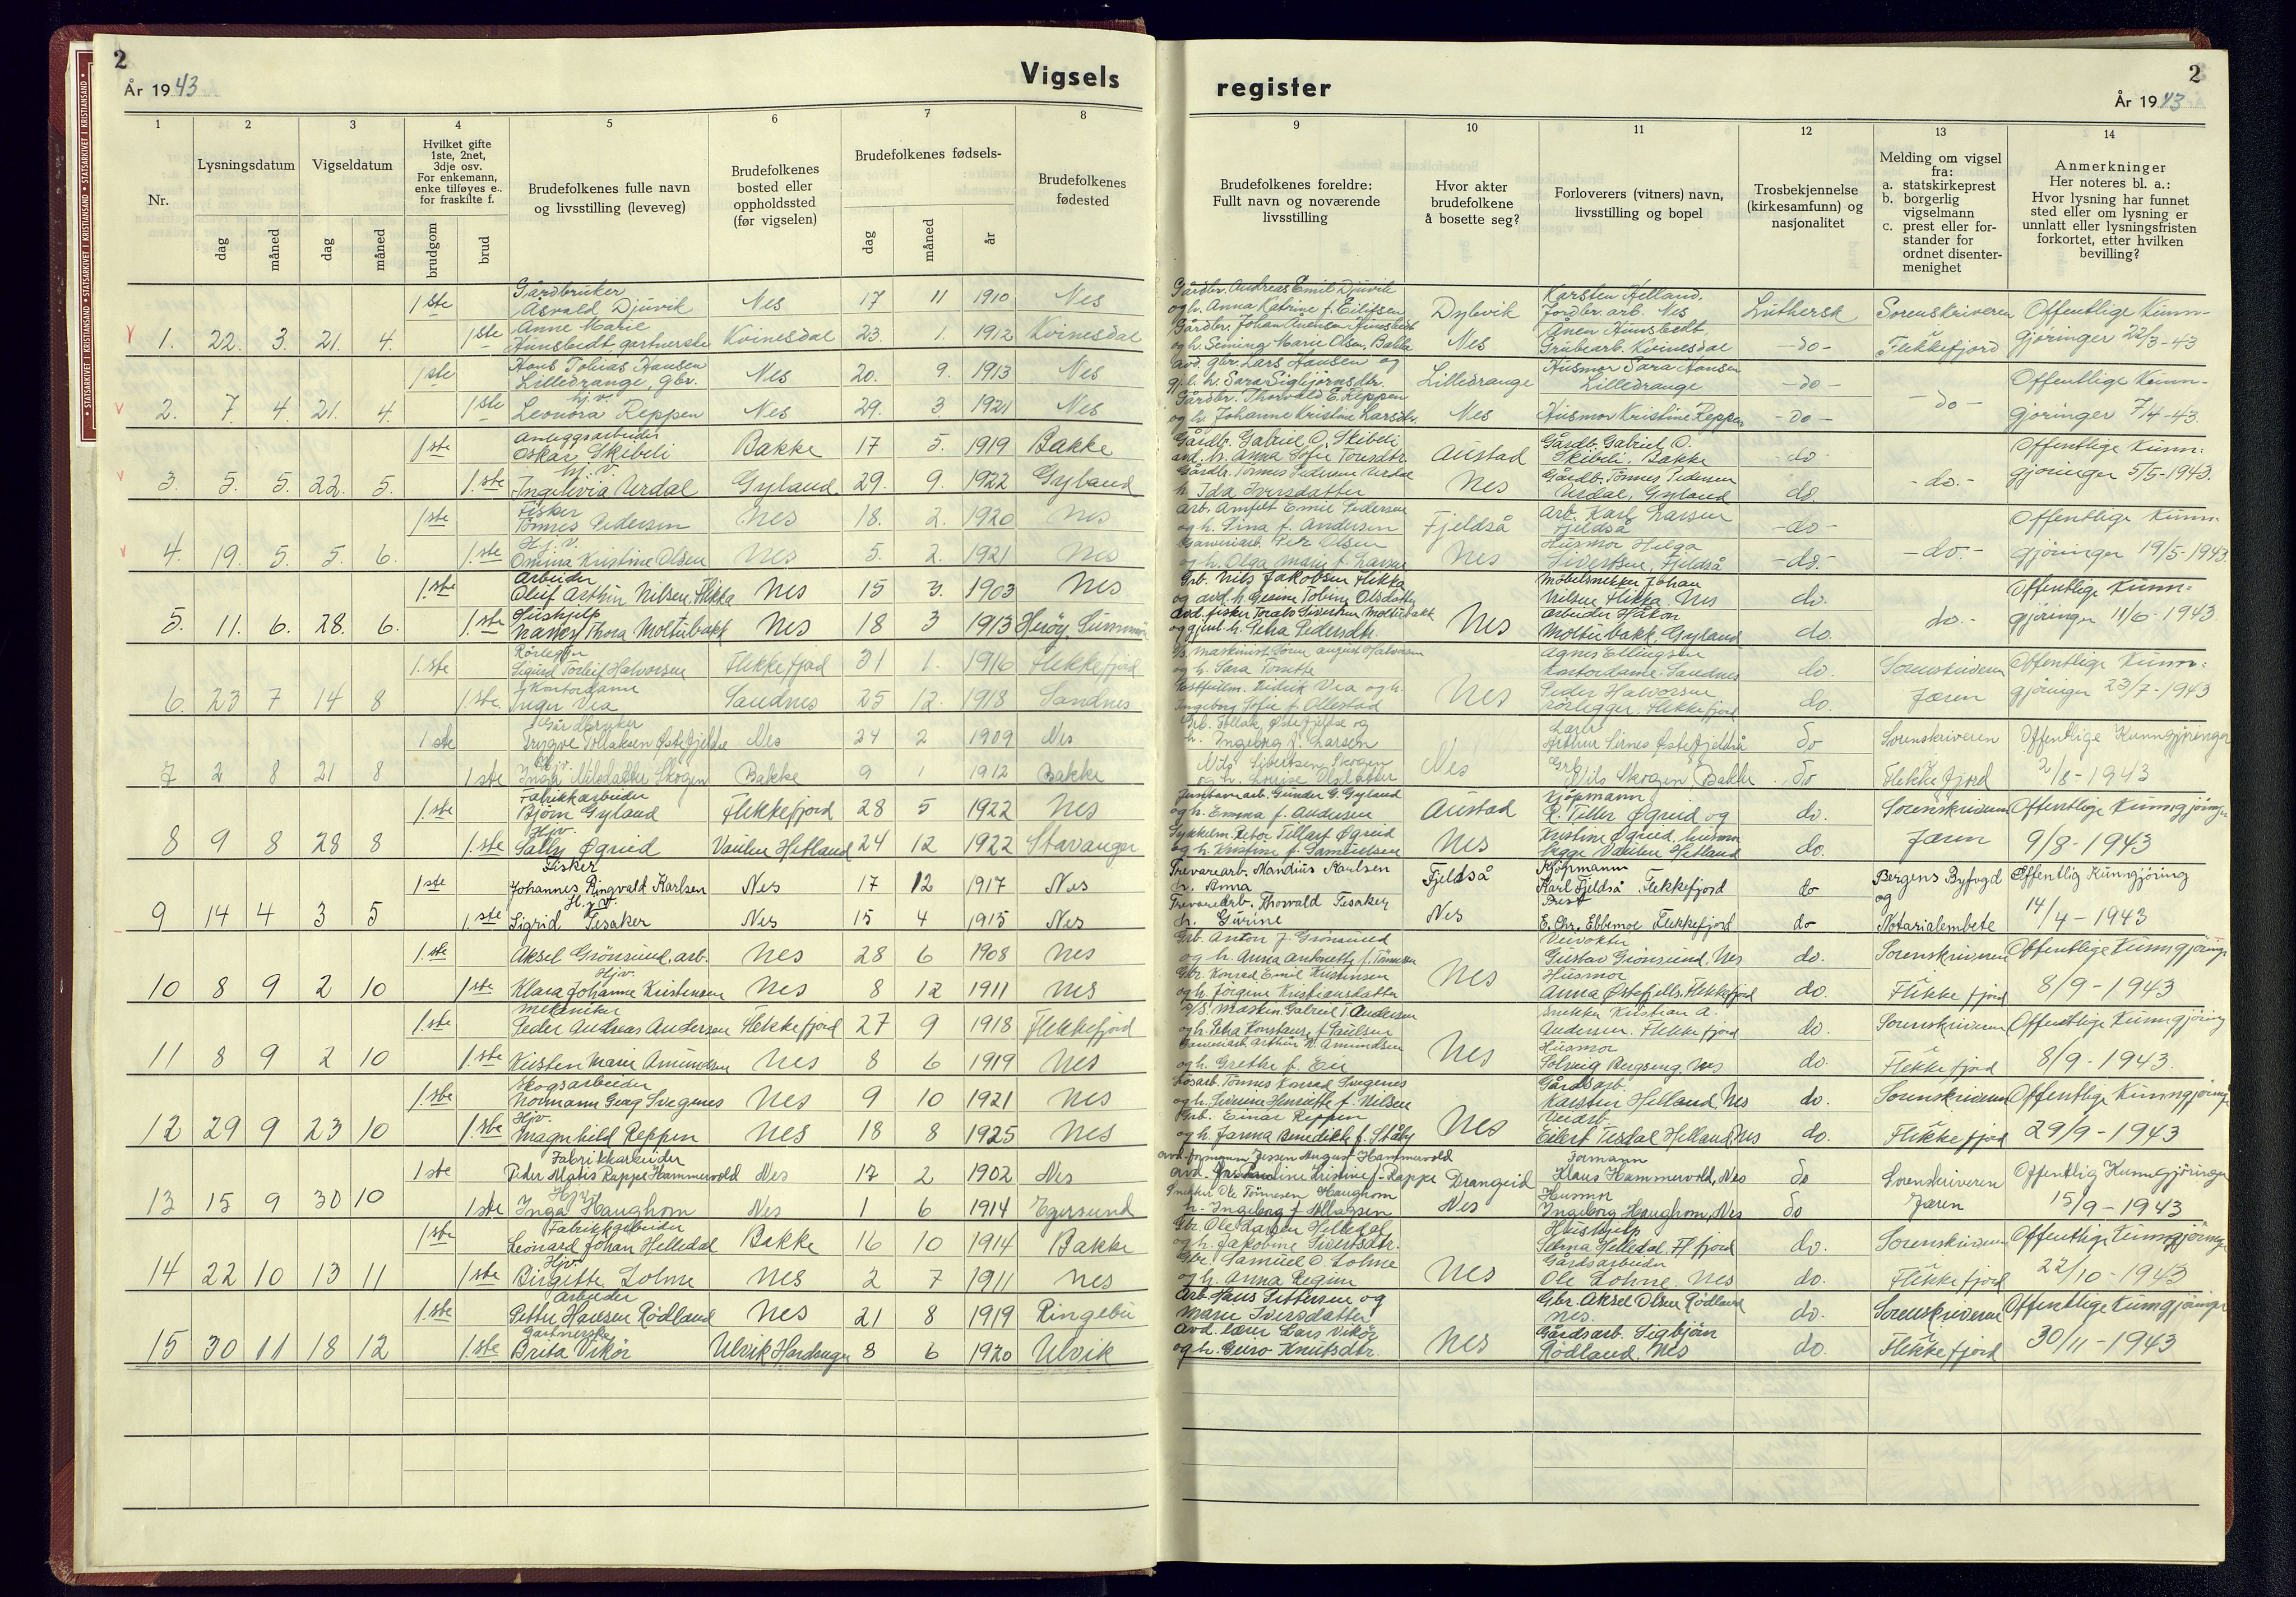 2
År 1943
Vigsels
1 2 3 4 5 6 7 8
Nr.
Lysningsdatum
Vigseldatum
Hvilket gifte
1ste, 2net,
3dje osv.
For enkemann,
enke tilføyes e..
for fraskilte f.
Brudefolkenes fulle navn
og livsstilling (leveveg)
Brudefolkenes
bosted eller
oppholdssted
(før vigselen)
Brudefolkenes fødsels-
Brudefolkenes
fødested
dag måned dag måned brudgom brud dag måned år
Gårdbruker
1ste Asvald Djuvik Nes 17 11 1910 Nes
Anne Marie
1. 22. 3. 21. 4. 1ste Hunsbedt, gartnerske Kvinesdal 23. 1. 1912 Kvinesdal
Hans Tobias Hansen
1ste Lilledrange, gbr. Nes 20. 9. 1913 Nes
hj.v.
2. 7. 4. 21. 4. 1ste Leonora Reppen Nes 29. 3. 1921 Nes
Anleggsarbeider
1ste Oskar Skibeli Bakke 17 5. 1919 Bakke
hj.v.
3. 5. 5. 22. 5. 1.ste Ingelivia Urdal Gyland 29. 9. 1922 Gyland
Fisker
1ste Tønnes Pedersen Nes 18. 2. 1920 Nes
H.j.v.
4. 19. 5. 5. 6. 1.ste Omina Kristine Olsen Nes 5. 2. 1921 Nes
Arbeider
1.ste Oluf Arthur Nilsen Flikka Nes 15 3. 1903 Nes
Hushjelp
5. 11. 6. 28. 6. 1.ste Nanny Thora Moltubakk Nes 18 3 1913 Herøy, Sunnmøre
Rørlegger
1.ste Sigurd Torleif Halvorsen Flekkefjord 31 1. 1916 Flekkefjord
Kontordame
6. 23 7 14 8 1.ste. Inger Vea Sandnes 25 12. 1918 Sandnes
Gårdbruker
1ste Trygve Tollaksen Østefjeldse Nes 24 2 1909 Nes
Hjv.
7 2 8 21 8 1ste Inga Nilsdatter Skogen Bakke 9 1 1912 Bakke
Fabrikkarbeider
1.ste Bjørn Gyland Flekkefjord 28 5 1922 Nes
Hjv.
8 9 8 28 8 1.ste Sally Øgreid Vaulen Hetland 24 12 1922 Stavanger
Fisker
1ste Johannes Ringvald Karlsen Nes 17 12 1917 Nes
H.j.v.
9 14 4 3 5 1.ste Sigrid Tesaker Nes 15 4 1915 Nes
1.ste Aksel Grønsund, arb. Nes 28 6 1908 Nes
Hjv.
10 8 9 2 10 1ste Klara Johanne Kristensen Nes 8 12 1911 Nes
Mekaniker
1.ste Peder Andreas Andersen Flekkefjord 27 9 1918 Flekkefjord
11 8 9 2 10 1.ste Kirsten Marie Amundsen Nes 8 6 1919 Nes
Skogsarbeider
1.ste Normann Georg Svegenes Nes 9 10 1921 Nes
Hjv.
12 29 9 23 10 1.ste Magnhild Reppen Nes 18 8 1925 Nes
Fabrikkarbeider
1ste Peder Matis Rappe Hammervold Nes 17 2 1902 Nes
Hjv.
13 15 9 30 10 1ste Inga Haughom Nes 1 6 1914 Egersund
Fabrikkarbeider
1.ste Leonard Johan Helledal Bakke 16 10 1914 Bakke
Hjv.
14 22 10 13 11 1ste Birgitte Lohne Nes 2 7 1911 Nes
Arbeider
1.ste Petter Hansen Rødland Nes 21 8 1919 Ringebu
Gartnerske
15 30 11 18 12 1.ste Brita Vikør Ulvik Hardanger 8 6 1920 Ulvik
register
2
År 1943
9 10 11 12 13 14
Brudefolkenes foreldre:
Fullt navn og noværende
livsstilling
Hvor akter
brudefolkene
å bosette seg?
Forloverers (vitners) navn,
livsstilling og bopel
Trosbekjennelse
(kirkesamfunn) og
nasjonalitet
Melding om vigsel
fra:
a. statskirkeprest
b. borgerlig
vigselmann
c. prest eller for-
stander for
ordnet disenter-
menighet
Anmerkninger
Her noteres bl. a.:
Hvor lysning har funnet
sted eller om lysning er
unnlatt eller lysningsfristen
forkortet, etter hvilken
bevilling?
Gårdbr. Andreas Emil Djuvik Karsten Helland,
og h. Anna Katrine f. Eilifsen Dybvik Jordbr. arb. Nes Luthersk Sorenskriveren Offentlige Kunn-
Gårdbr. Johan Anensen Hunsbedt Anen Hunsbedt,
og h. Seming Marie Olsen, Bakke Nes Grubearb. Kvinesdal -do- Flekkefjord gjøringer 22/3-43
avd. gbr. Lars Hansen og Husmor Sara Hansen
gj.l. h. Sara Sigbjørnsdtr. Lilledrange Lilledrange -do- Offentlige Kunn-
Gårdbr. Thorvald E. Reppen -do-
og h. Johanne Kristine Larsdtr. Nes Husmor Kristine Reppen -do- gjøringer 7/4-43.
Gårdb. Gabriel O. Skibeli Gårdb. Gabriel O.
avd. h. Anna Sofie Toresdtr. Austad Skibeli, Bakke -do- Offentlige Kunn:
Gårdbr. Tønnes Pedersen Urdal Gårdb. Tønnes Pedersen
h. Ida Iversdatter Nes Urdal, Gyland do. -do.- gjøringer 5/5-1943.
Arb. Arnfelt Emil Pedersen Arb. Karl Larsen
og h. Lina f. Andersen Fjeldså Fjeldså -do- Offentlige Kunn:
Garveriarb. Petr Olsen Husmor Helga
og h. Olga Marie f. Larsen Nes Sivertsen, Fjeldså -do- -do.- gjøringer 19/5-1943.
Grb. Nils Jakobsen Flikka Møbelsnekker Johan
og avd. h. Gesine Tobine Olsdatter Nilsen Flikka, Nes do. Offentlige Kunn:
Avd. fisker Torals Sivertsen Moltubakk Arbeider Håkon
og gjenl. h. Petra Pedersdtr. Nes Moltubakk, Gyland do. do.- gjøringer 11/6-1943.
D/S. Maskinist Søren August Halvorsen Agnes Ellingsen
og h. Sara Tonette Kontordame, Sandnes do. Sorenskriveren Offentlige Kunn:
Postfullm. Didrik Vea og h. Peder Halvorsen
Ingeborg Sofie f. Ollestad Nes rørlegger, Flekkefjord do. Jæren gjøringer 23/7-1943
Grb. Tollak Østefjeldse og Lærer
h. Ingeborg f. Larsen Arthur Sirnes Østefjeldså do Sorenskriveren Offentlige Kunngjøringer
Nils Sibertsen Skogen Grb
og h. Louise Olsdatter Nes Nils Skogen, Bakke do Flekkefjord 2/8-1943
Jernbanearb. Gunder G. Gyland Kjøpmann
og h. Emma f. Andersen Austad R. Teller Øgreid og do. Sorenskriveren Offentlige Kunngjøringer
Kristine Øgreid, husmor
og h. Kristine f. Samuelsen Nes begge Vaulen Hetland do. Jæren 9/8-1943
Trevarearb. Mandius Karlsen Kjøpmann
h. Anna Fjeldså Karl Fjeldså Flekkefjord do Bergens Byfogd Offentlig Kunngjøring
Trevarearb. Thorvald Tesaker Prest og
h. Gurine Nes E. Chr. Ebbenoe Flekkefjord do Notarialembete 14/4-1943
Grb. Anton J. Grønsund
og h. Anna Antonette f. Tønnesen Gustav Grønsund, Nes do. Sorenskriveren Offentlige Kunngjøringer
Gbr. Konrad Emil Kristensen Husmor
og h. Jørgine Kristiansdatter Nes Anna Østefjells, Flekkefjord do. Flekkefjord 8/9-1943
D/S. Maskin. Gabriel T. Andersen Snekker Kristian A.
og h. Petra Konstanse f. Paulsen Andersen. Flekkefjord do. Sorenskriveren Offentlige Kunngjøring
Garveriarb. Arthur N. Amundsen Husmor
og h. Grethe f. Eie Nes Solveig Bergseng, Nes do. Flekkefjord 8/9-1943.
Løsarb. Tønnes Konrad Svegenes Gårdsarb.
og h. Severine Henriette f. Nilsen Karsten Helland, Nes do. Sorenskriveren Offentlige Kunngjøringer
Grb. Einar Reppen Veiarb.
og h. Janna Benedikte f. Støby Nes Eilert Tesdal Helland, Nes do. Flekkefjord 29/9-1943
avd. Jessen August Hammervold Formann
avd. Pauline Kristine f. Rappe Drangeid Klaus Hammervold, Nes do Sorenskriveren Offentlig Kunngjøringer
Snekker Ole Tønnesen Haughom Husmor
h. Ingeborg f. Nes Ingeborg Haughom, Nes do Jæren 15/9-1943
Gbr. Ole Larsen Helledal Hushjelp
og h. Jakobine Sivertsdtr. Selma Helledal, Fl.fjord do. Sorenskriveren Offentlige Kunngjøringer
Gbr. Samuel O. Lohne Gårdsarbeider
og h. Anna Regine Nes Ole Lohne. Nes do. Flekkefjord 22/10-1943
Arb. Hans Pettersen og Gbr. Aksel Olsen Rødland
Marie Iversdatter Nes. do. Sorenskriveren Offentlige Kunngjøringer
Avd. lærer Lars Vikør Gårdsarb. Sigbjørn
og h. Guro Knutsdtr. Nes Rødland. Nes do. Flekkefjord 30/11-1943
STATSARKIVET I KRISTIANSAND • STATSARKIVET I KRISTIANSAND • STATSARKIVET I KRISTIANSAND